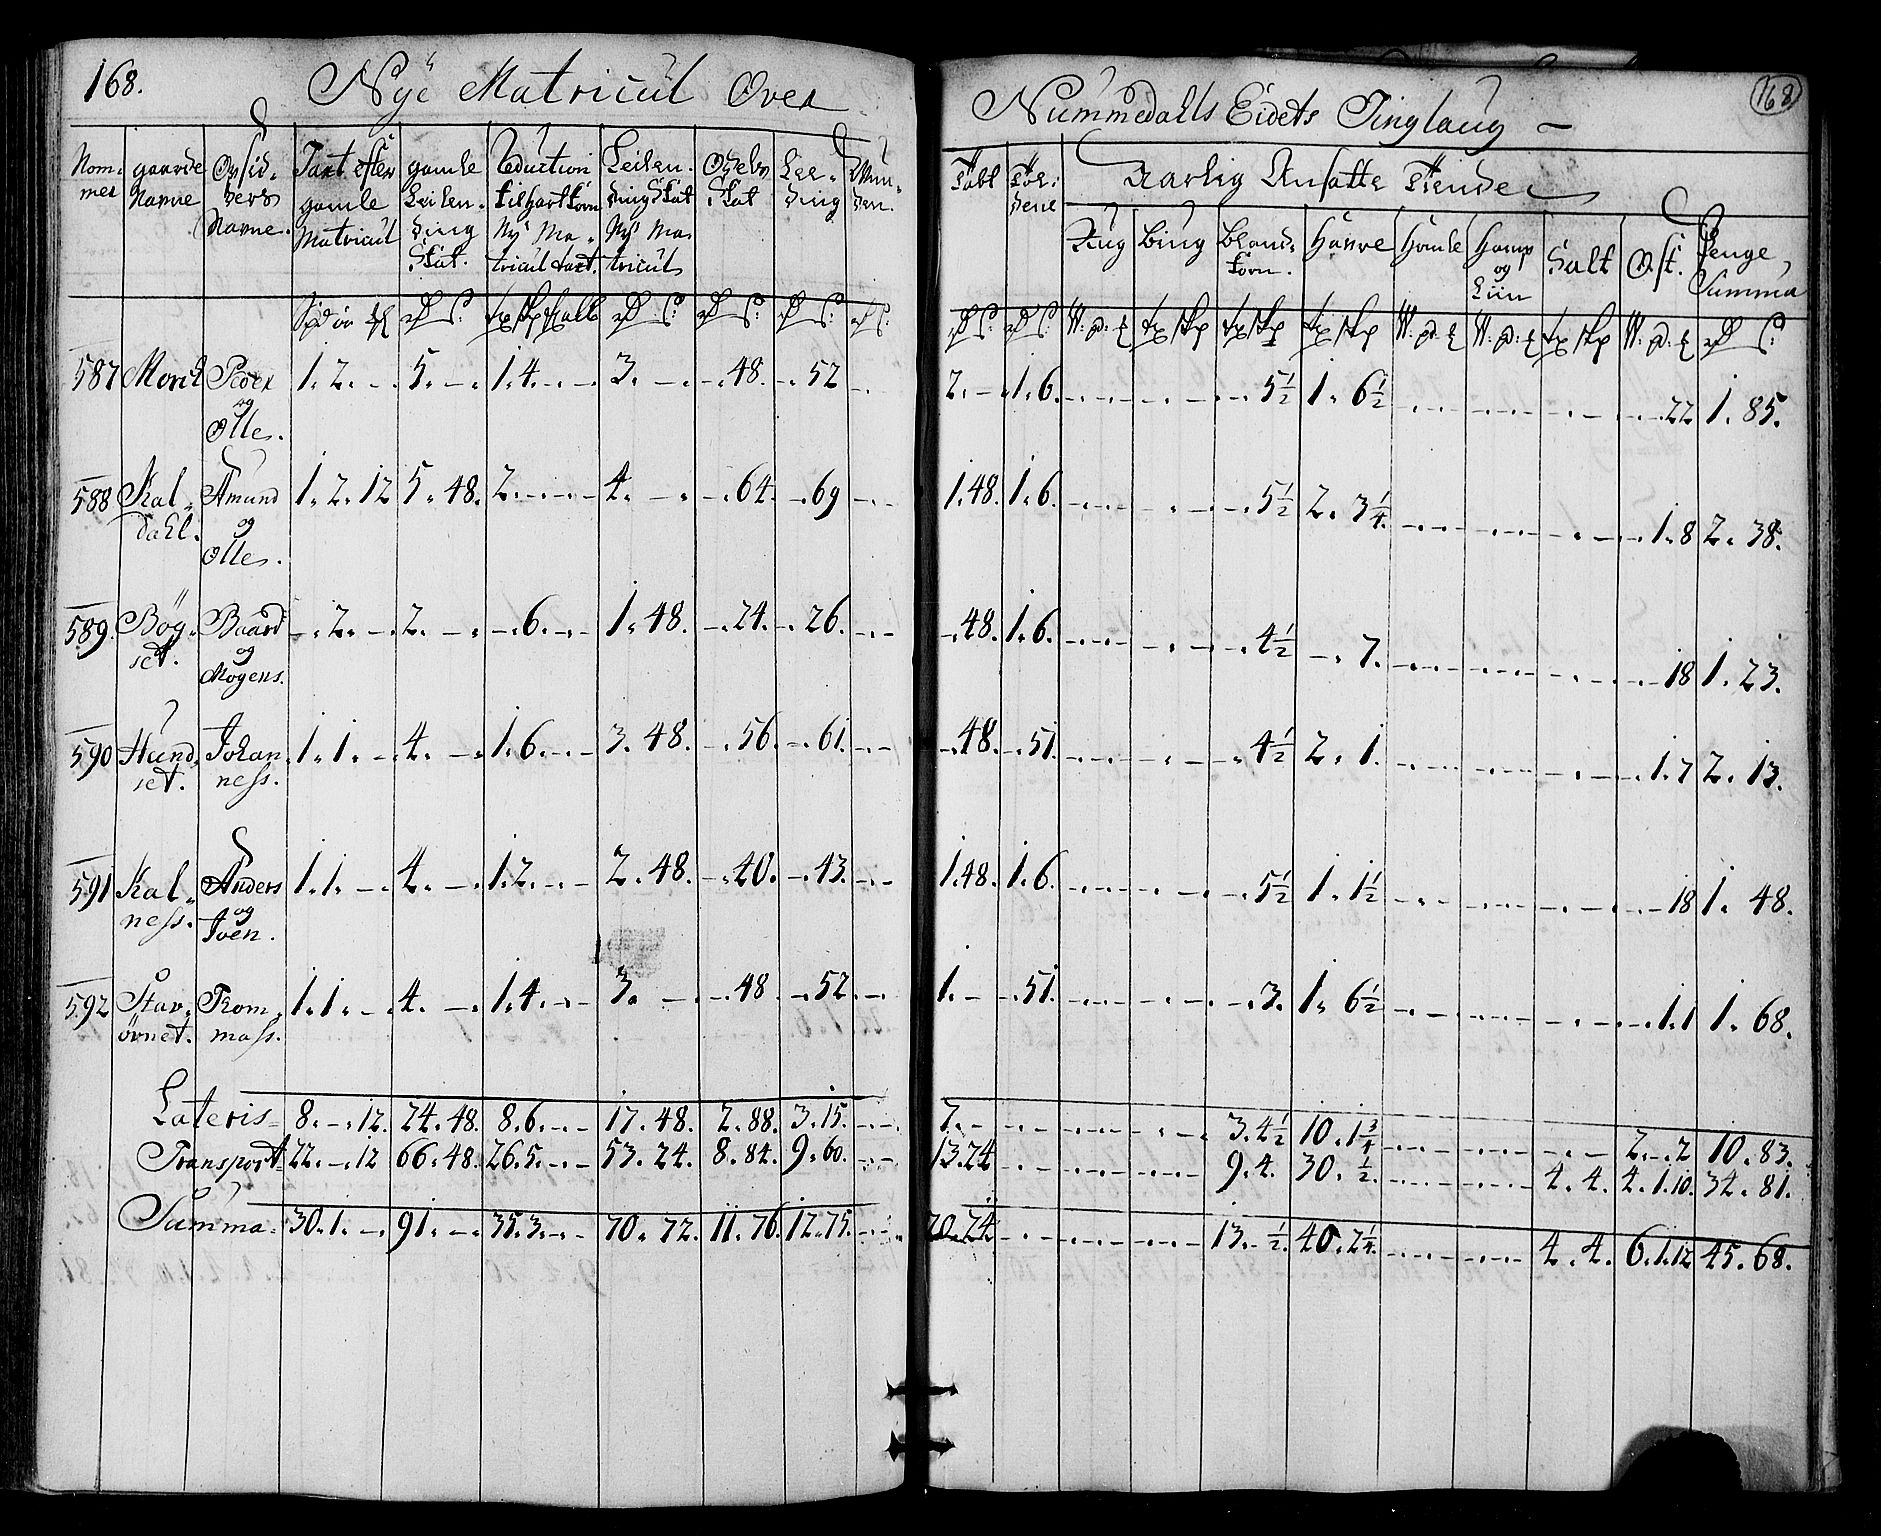 168. Nye Matricul Over Nummedalls Eidets Tinglaug 168
Nom- mer | gaarde Navne | Navne. | Taxt efter gamle Matricul | gamle Leilen- ding Skat. | Reduction til hart korn Ny Ma- tricul taxt. | Leilen- ding Skat Ny Ma tricul | Skat | Lee- ding
Aarlig Ansatte Tiende
Rug | Biug | Bland- korn. | Havre | Homle | Hamp og Liin | Salt | Ost. | Penge, Summa
587 Monk Peder og Olle. 1. 2. - . 5. - . 1. 4. - . - 3. - . - . 48. - . 52
2. - 1. 6. 5½ 1. 6½ 22 1. 85.
588 Kal- dahl. Amund og Olle. 1. 2. 12 5. 48. 2. - . - . - 4. - . - . 64. - . 69
1. 48. 1. 6. 5½ 2. 3¼ 1. 8 2. 38.
589. Bög- set. Baard og Mogens. - . 2. - . 2. - . - . 6. - . - 1. 48. - . 24. - . 26.
- . 48. 1. 6. 4½ - . 7. 18 1. 23.
590 Hund- set. Johan- ness. 1. 1. - . 4. - . 1. 6. - . - 3. 48. - . 56. - . 61.
- . 48. - . 51. 4½ 2. 1. 1. 7 2. 13.
591 Kal- ness. Anders og Joen. 1. 1. - . 4. - . 1. 2. - . - 2. 48. - . 40. - . 43.
1. 48. 1. 6. 5½ 1. 1½ 18 1. 48.
592 Stav- övnet. Thom- mass. 1. 1. - . 4. - . 1. 4. - . - 3. - . - . 48 - . 52.
1. - - . 51. 3. 1. 6½ 1. 1 1. 68.
Lateris 8. - . 12. 24. 48. 8. 6. - . - 17. 48. 2. 88. 3. 15.
7. - 3. 4½ 10. 1¾ 2. - . 2 10. 83.
Transport 22. - . 12 66. 48. 26. 5. - . - 53. 24. 8. 84. 9. 60.
13. 24 9. 4. 30. ½. 4. 4. 4. 1. 10. 34. 81.
Summa 30. 1. - . 91. - . 35. 3. - . - 70. 72. 11. 76. 12. 75.
20. 24. 13. - ½. 40. 2¼. 4. 4. 6. 1. 12 45. 68.